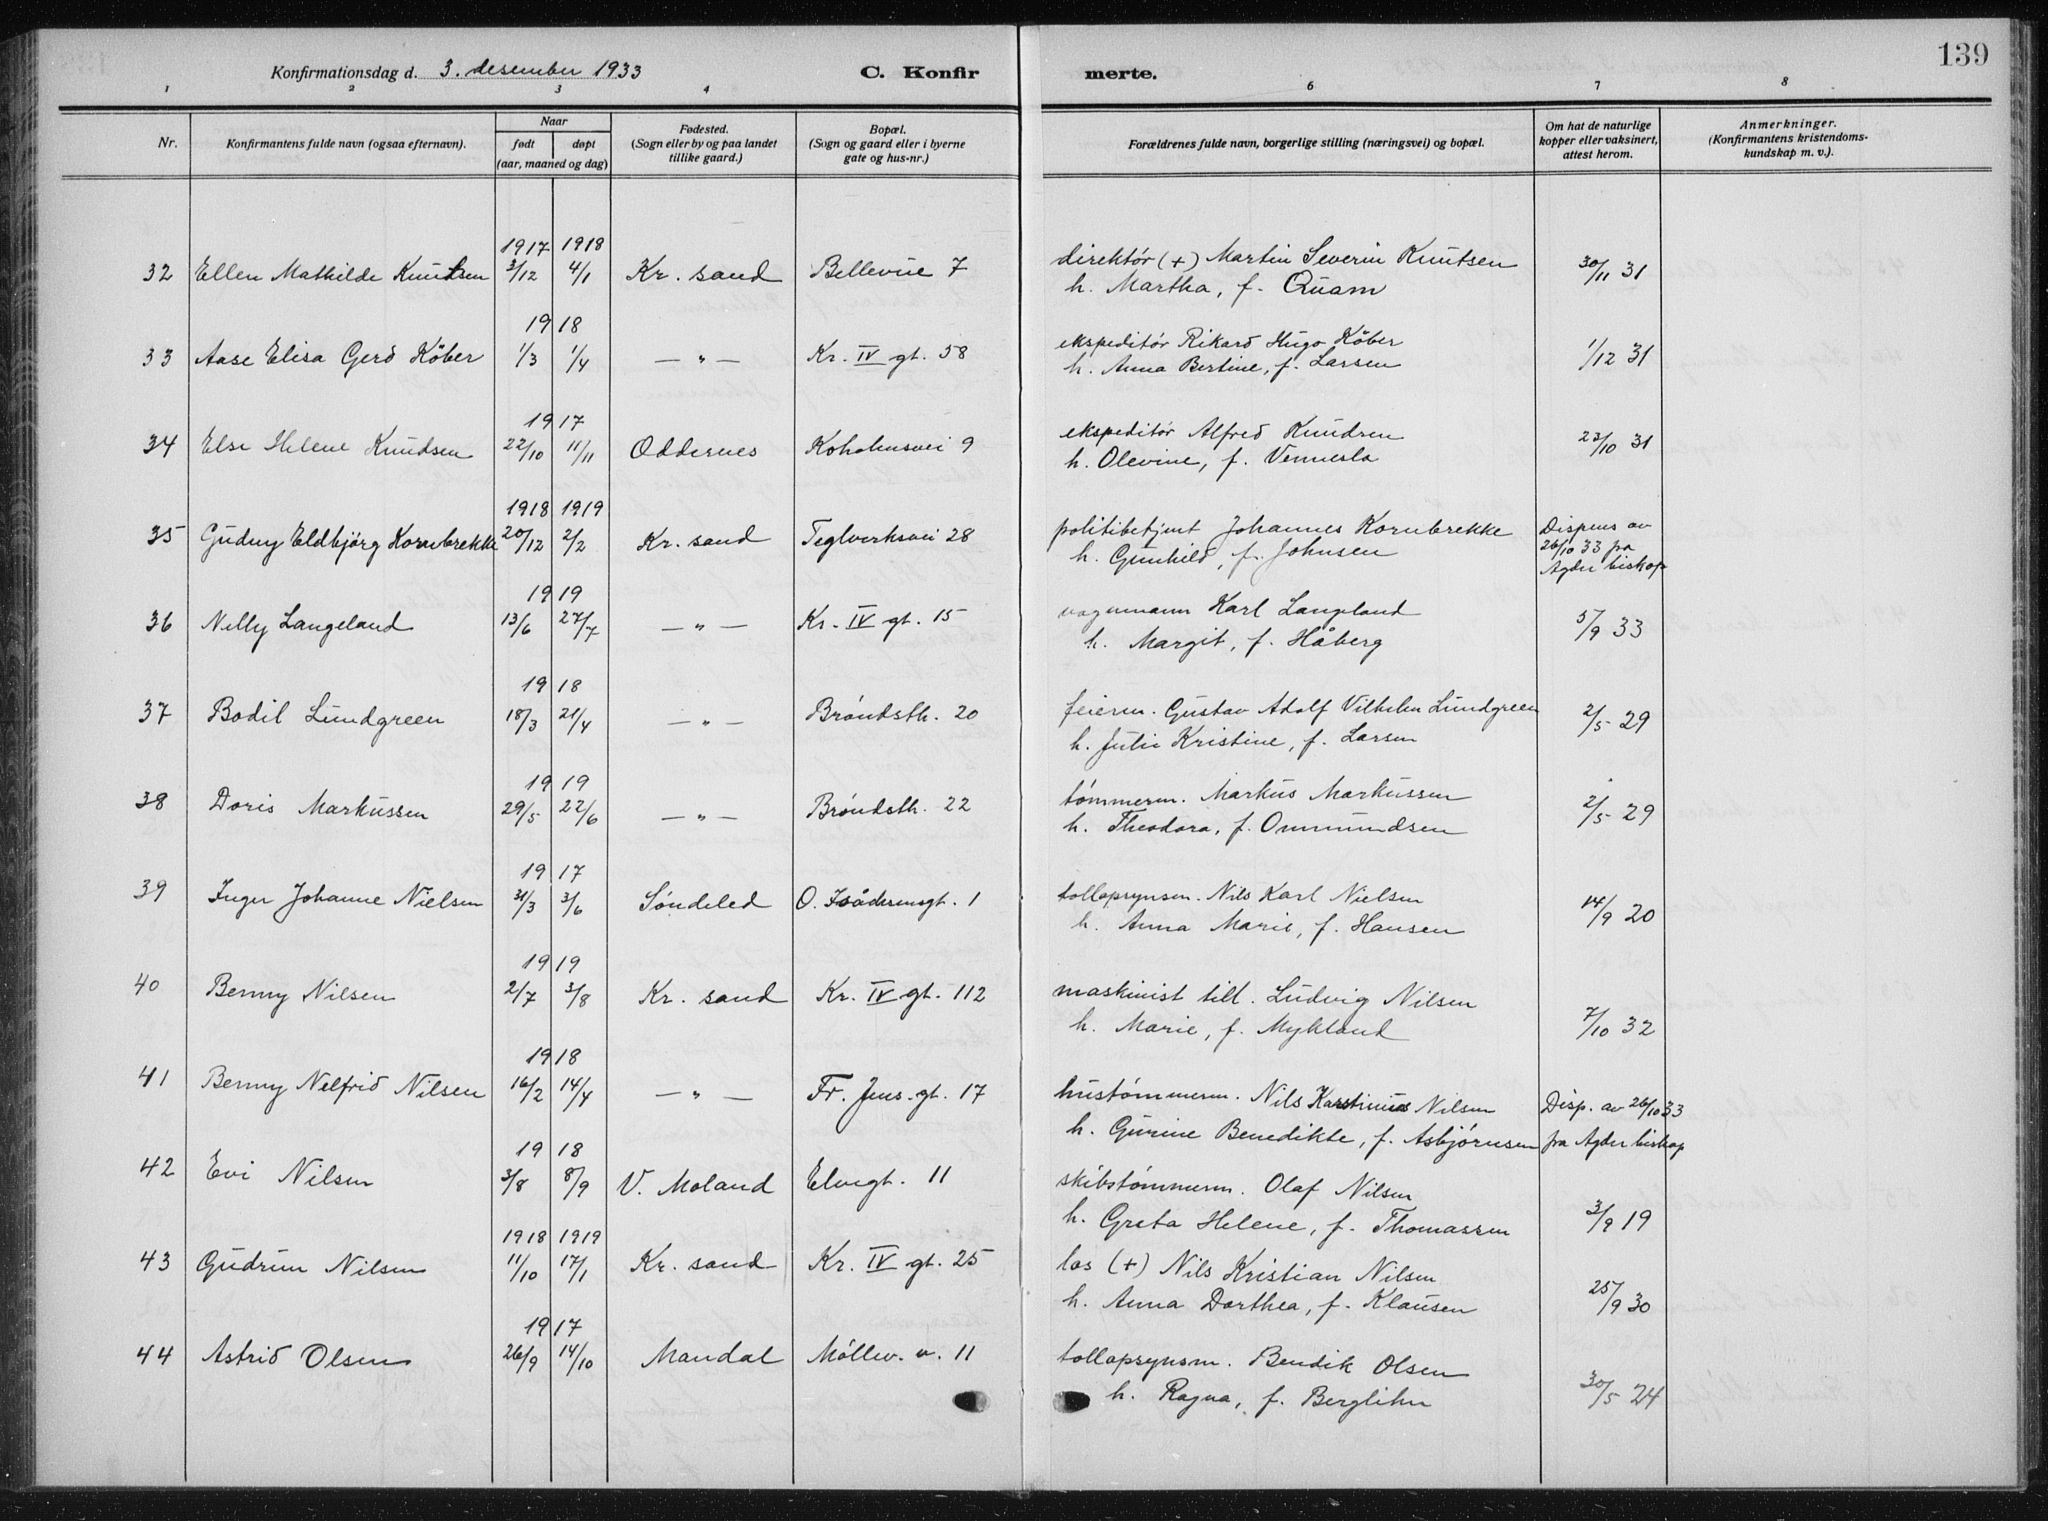 139
Konfirmationsdag d. 3. desember 1933 C. Konfirmerte.
1 2 3 4 6 7 8
Nr. Konfirmantens fulde navn (ogsaa efternavn). Naar født døpt (aar, maaned og dag) Fødested. (Sogn eller by og paa landet tillike gaard.) Bopæl. (Sogn og gaard eller i byerne gate og hus-nr.) Forældrenes fulde navn, borgerlige stilling (næringsvei) og bopæl. Om hat de naturlige kopper eller vaksinert, attest herom. Anmerkninger. (Konfirmantens kristendomskundskap m. v.).
1917 1918
32 Ellen Mathilde Knutsen 3/12 4/1 Kr. sand Bellevue 7 direktør (+) Martin Severin Knutsen 30/11 31
h. Martha, f. Quam
1918
33 Aase Elisa Gerd Köber 1/3 1/4 — " — Kr. IV gt. 58 ekspeditør Rikard Hugo Köber 1/12 31
h. Anna Bertine, f. Larsen
1917
34 Else Helene Knudsen 22/10 11/11 Oddernes Koholmsvei 9 ekspeditør Alfred Knudsen 23/10 31
h. Olevine, f. Vennesla
1918 1919
35 Gudny Eldbjörg Kornbrekke 20/12 2/2 Kr. sand Teglverksvei 28 politibetjent Johannes Kornbrekke Dispens av
h. Gunhild, f. Johnsen 26/10 33 fra
Agder biskop
1919
36 Nelly Langeland 13/6 27/7 — " — Kr. IV gt. 15 vognmann Karl Langeland 5/9 33
h. Margit, f. Håberg
1918
37 Bodil Lundgreen 18/3 21/4 — " — Brøndsth. 20 feierm. Gustav Adolf Vilhelm Lundgreen 2/5 29
h. Julie Kristine, f. Larsen
1919
38 Doris Markussen 29/5 22/6 — " — Brøndsth. 22 tømmerm. Markus Markussen 2/5 29
h. Theodora, f. Ommundsen
1917
39 Inger Johanne Nielsen 31/3 3/6 Søndeled O. gt. 1 tollopsynsm. Nils Karl Nielsen 14/9 20
h. Anna Marie, f. Hansen
1919
40 Benny Nilsen 2/7 3/8 Kr. sand Kr. IV gt. 112 maskinist till. Ludvig Nilsen 7/10 32
h. Marie, f. Mykland
1918
41 Benny Nelfrid Nilsen 16/2 14/4 — " — Fr. Jens. gt. 17 hustømmerm. Nils Karstinius Nilsen Disp. av 26/10 33
h. Gurine Benedikte, f. Asbjørnsen fra Agder biskop
1918
42 Evi Nilsen 3/8 8/9 V. Moland Elvegt. 11 skibstømmerm. Olaf Nilsen 3/9 19
h. Greta Helene, f. Thomassen
1918 1919
43 Gudrun Nilsen 11/10 17/1 Kr. sand Kr. IV gt. 25 los (+) Nils Kristian Nilsen 25/9 30
h. Anna Dorthea, f. Klausen
1917
44 Astrid Olsen 26/9 14/10 Mandal Møllev. v. 11 tollopsynsm. Bendik Olsen 30/5 24
h. Ragna, f. Berglihn